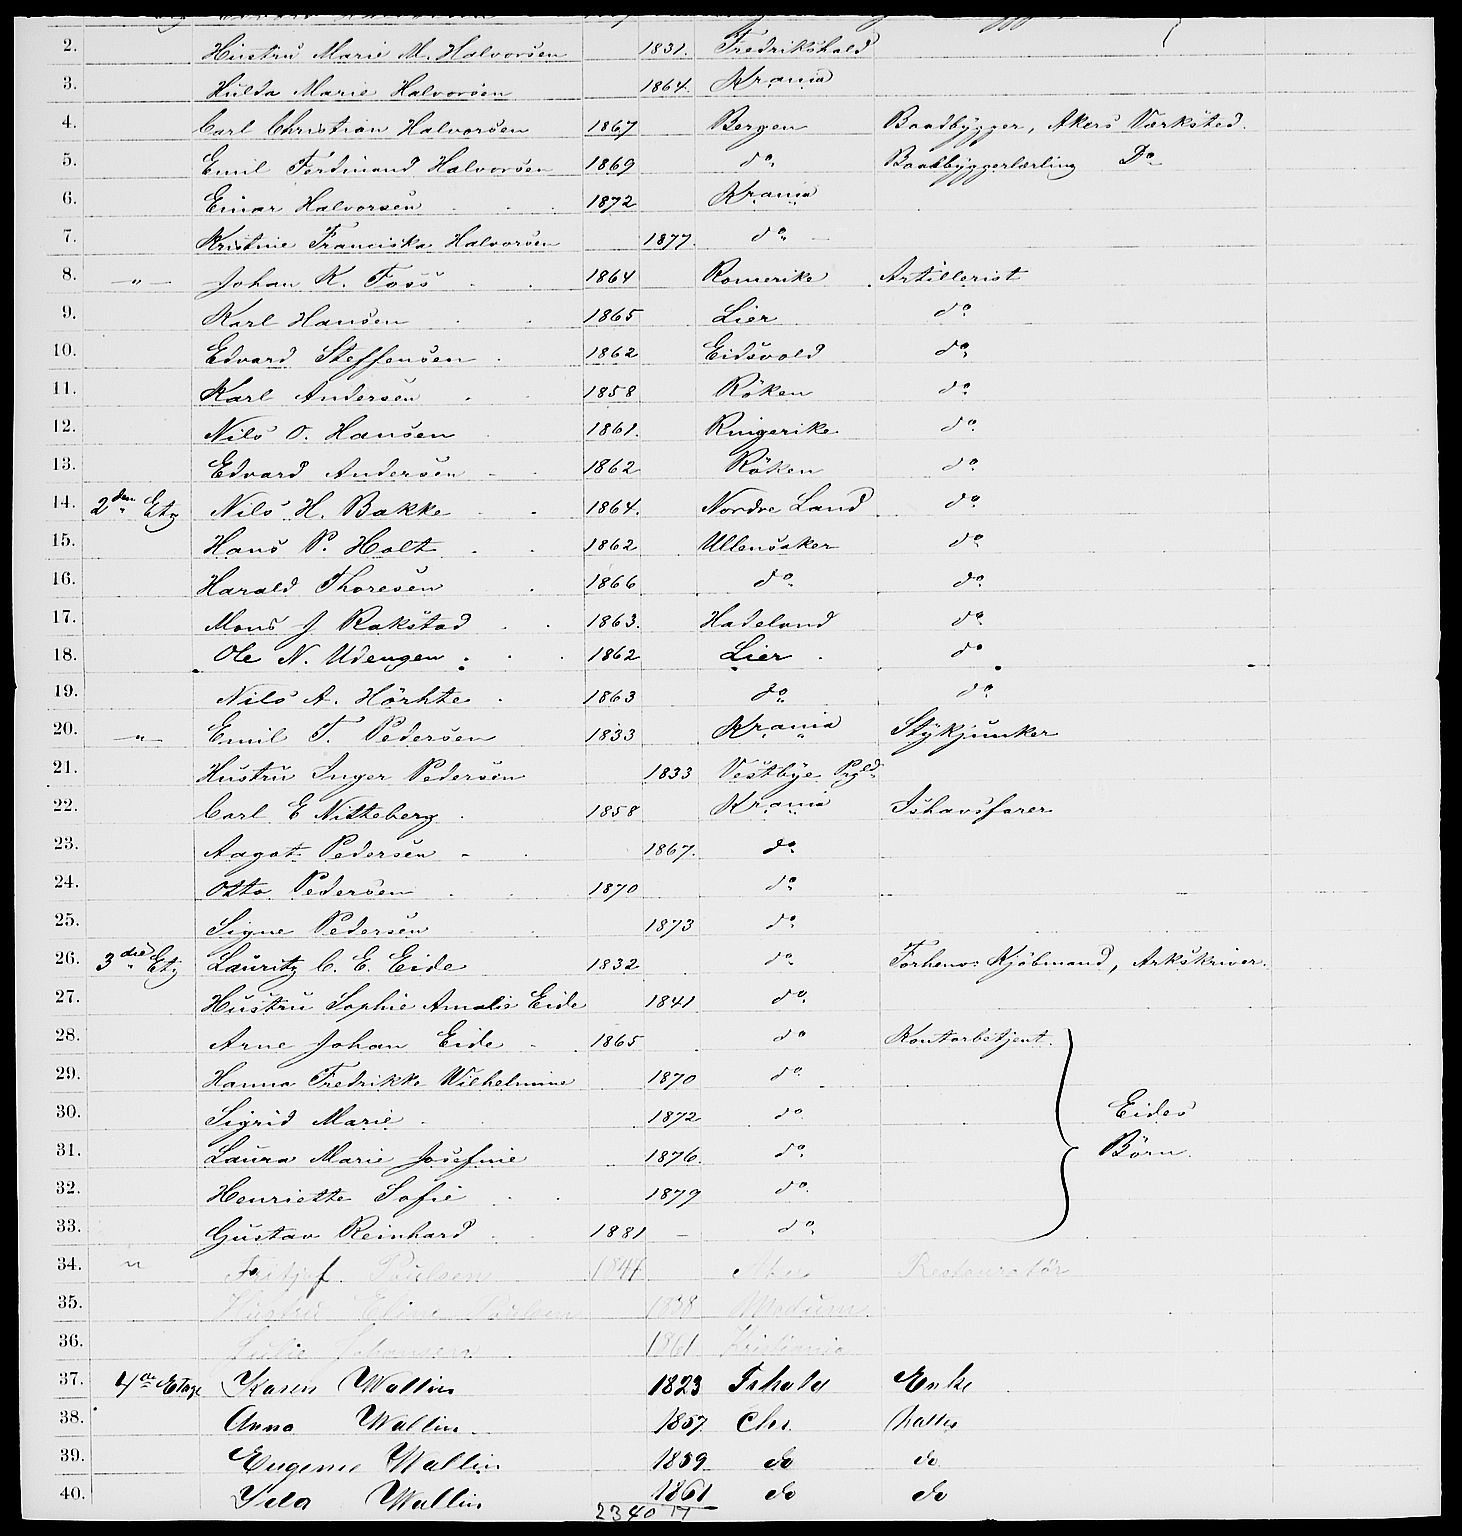 2. Hustru Marie M. Halvorsen 1831. Fredrikshald
3. Hulda Marie Halvorsen 1864. Krania
4. Carl Christian Halvorsen 1867 Bergen Baadbygger, Akers Værksted.
5. Emil Ferdinand Halvorsen 1869 do Baadbyggerlærling Do
6. Einar Halvorsen 1872 Krania
7. Kristine Franciska Halvorsen 1877. do
8. —"— Johan K. Foss 1864 Romerike Artillerist
9. Karl Hansen 1865 Lier do
10. Edvard Steffensen 1862 Eidsvold do
11. Karl Andersen 1858 Röken do
12. Nils O. Hansen 1861. Ringerike do
13. Edvard Andersen 1862 Röken do
14. 2den Etg Nils H. Bakke 1864. Nordre Land do
15. Hans P. Holt 1862 Ullensaker do
16. Harald Thoresen 1866 do do
17. Mons J Rakstad 1863. Hadeland do
18. Ole N. Udengen 1862 Lier do
19. Nils A. Hörhte 1863 do do
20. —"— Emil T. Pedersen 1833 Krania Stykjunker
21. Hustru Inger Pedersen 1833 Vestbye Prgld.
22. Carl E Nitteberg 1858 Krania Ishavsfarer
23. Aagot Pedersen 1867. do
24. Otto Pedersen 1870 do
25. Signe Pedersen 1873 do
26. 3die Etg Lauritz C. E. Eide 1832 do Forhenv: Kjöbmand, Arkskriver.
27. Hustru Sophie Amalie Eide 1841 do
28. Arne Johan Eide 1865 do Kontorbetjent.
29. Hanna Fredrikke Wilhelmine 1870 do
30. Sigrid Marie 1872 do Eides
31. Laura Marie Josefine 1876. do Börn.
32. Henriette Sofie 1879 do
33. Gustav Reinhard 1881 – do
34. " Fritjof Poulsen 1847 Aker Restauratör
35. Hustru Eline Poulsen 1838 Modum
36. Julie Johansen 1861 Kristiania
37. 4de Etage Karen Wallin 1823 Frhald Enke
38. Anna Wallin 1857 Chr. Datter
39. Eugenie Wallin 1859 do do
40. Ida Wallin 1861 do do
23 40 17